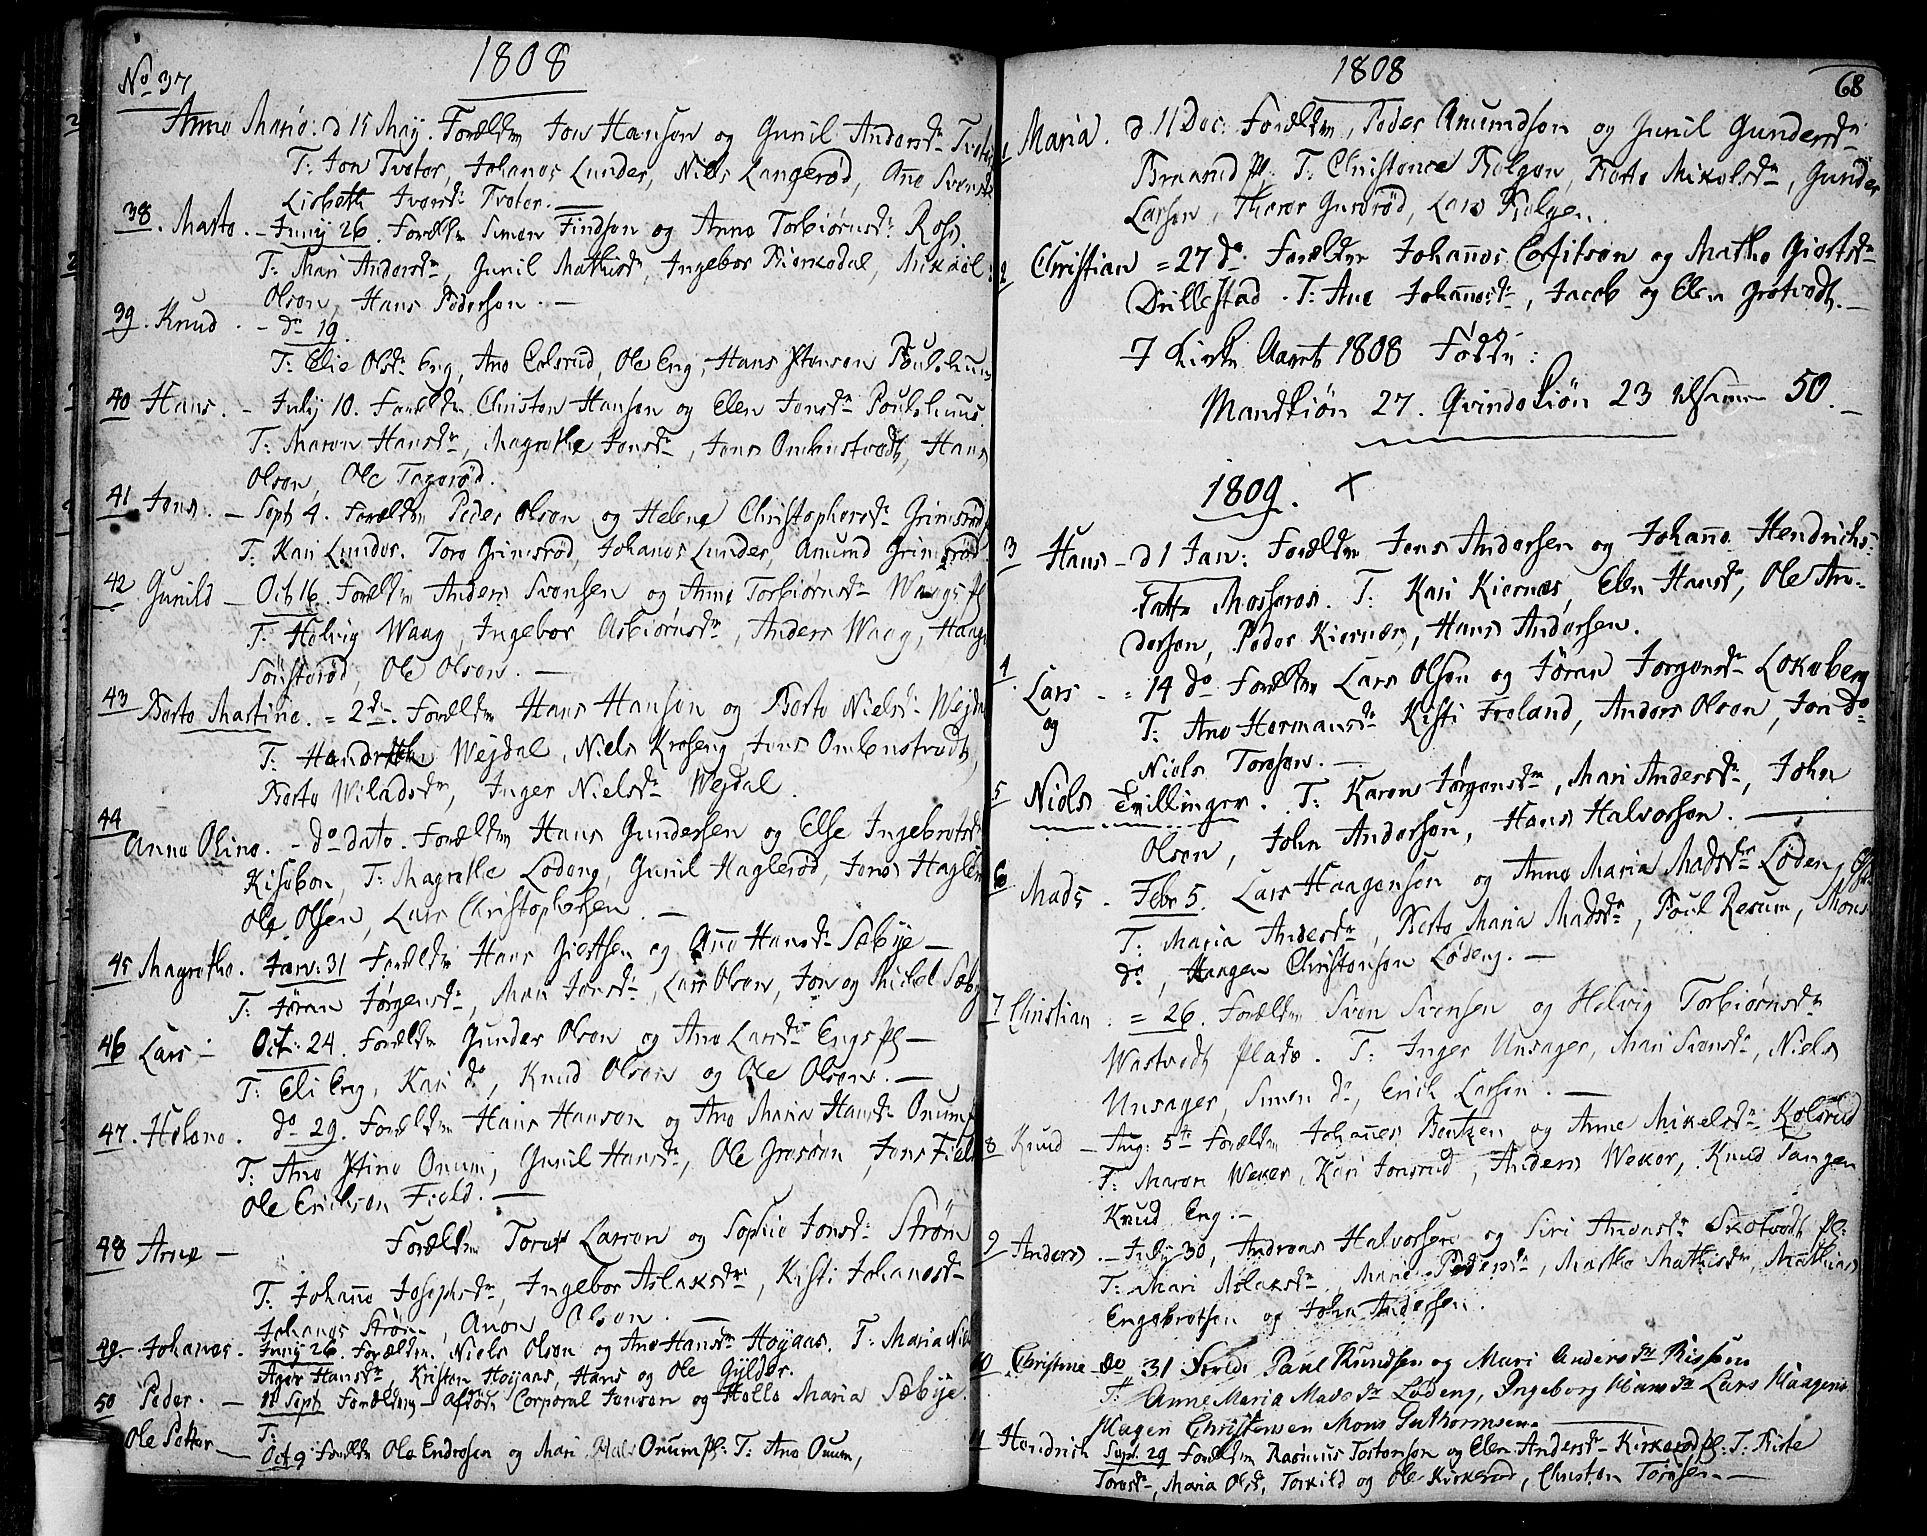 1808
No 37
Anne Marie. d 15 May. Forældrn Jon Hanson og Gunil Andersdr Tveter
T: Jon Tveter, Johanes Lunder, Niels Langerød, Ane Svensdr
Lisbeth Iversdr Tveter. —
38. Marte. — Juny 26. Forældrn Simen Findson og Anne Torbiørnsdr Ross.
T: Mari Andersdr, Gunil Mathisdr, Ingebor Bierkedal, Mikkel
Olson, Hans Pederson. —
39. Knud. — do 19.
T: Elie Olsdr Eng, Ane Eelsrud, Ole Eng, Hans Stenson Poulshuus
40 Hans. — July 10. Forældrn Christen Hanson og Elen Jonsdr Poulshuus.
T: Maren Hansdr, Magrethe Jonsdr, Jens Ombustvedt, Hans
Olson, Ole Tagerød.
41 Jens. — Sept 4. Forældrn Peder Olson og Helene Christophersdr Grimsrød
T: Kari Lunder. Tore Grimsrød, Johanes Lunder, Amund Grimsrød
42 Gunild — Oct 16. Forældrn Anders Svensen og Anne Torbiørnsdr Waags pl
T: Helvig Waag, Ingebor Asbiørnsdr, Anders Waag, Haagen
Sønsterød, Ole Olson. —
43 Berte Martine. = 2dn. Forældrn Hans Hanson og Berte Nielsdr Wejdal
T: Wejdal, Niels Kroseng, Jens Ombenstvedt,
Berte Wiladsdr, Inger Nielsdr Wejdal.
44
Anne Oline. — do dato. Forældrn Hans Gundersen og Else Ingebretsdr
Kisebon, T: Magrethe Lødeng, Gunil Haglerød, Jens Haglerød
Ole Olsen, Lars Christophersen. —
45 Magrethe. Janv: 31 Forældrn Hans Giertsen og Ane Hansdr Sæbye —
T: Jøran Jørgensdr, Mari Jonsdr, Lars Olson, Jon og Mickel Sæbye
46 Lars — Oct: 24. Forældrn Gunder Olson og Ane Larsdr Engs pl —
T: Eli Eng, Kari do, Knud Olson og Ole Olson. —
47. Helene. do 29. Forældrn Hans Hanson og Ane Maria Hansdr Onum pl
T: Ane Stine Onum, Gunil Hansdr, Ole Græsøen, Jens Field
Ole Erikson Field. —
48 Arne — Forældrn Larson og Sophie Jonsdr: Strøm
T: Johane Josephsdr, Ingebor Aslaksdr, Kisti Johanesdr
Johanes Strøm, Anon Olson. —
49. Johanes. Juny 26. Forældrn. Niels Olson og Ane Hansdr Hoyaas. T: Maria Niels
Ager Hansdr, Kristen Hoyaas, Hans og Ole Gylder.
50 Peder. — 11 Sept Forældrn — afdøde Corporal Jonson og Helle Maria Sæbye.
T:
Ole Petter — Oct 9 Forældrn Ole Endresen og Mari Onum pl: T: Ane Onum,
1808
68
1 Maria. d. 11 Dec: Forældrn, Peder Amundson og Gunil Gundersdr
Braarud pl. T: Christence Bølgen, Berte Mikelsdr, Gunder
Larson, Gunderød, Lars Bølgen.
2 Christian = 27 do. Forældrn Johanes Corfitson og Mathe Giertsdr
Drillestad. T: Ane Johanesdr, Jacob og Elen Grøtvedt. —
I Aaret 1808 Fødde:
Mandkiøn 27. Qvindekiøn 23 tilsamm 50. —
1809. X
3 Hans — d 1 Jan: Forældrn Jens Andersen og Johane Hendrichs:
Datt Mosseros. T: Kari Kiernæs, Elen Hansdr, Ole An-
derson, Peder Kiernæs, Hans Andersen.
4 Lars — = 14 do Forældrn Lars Olson og Jøran Jorgensdr Løkeberg
og T: Ane Hermansdr Kisti Froland, Anders Olson, Jon do
Niels Toreson. —
5 Niels Tvillinger. T: Karen Jørgensdr, Mari Andersdr, John
Olson, John Anderson, Hans Halvorson. —
6 Mads. Febr 5. Lars Haagenson og Anne Maria Madsdr Lødeng
T: Maria Andersdr, Berte Maria Madsdr, Poul Resum, Mons
do, Haagen Christenson Lødeng. —
7 Christian. = 26. Forældrn Sven Svensen og Helvig Torbiørnsdr
Wastvedt plads. T: Inger Unsager, Mari Svensdr, Niels
Unsager, Simen do, Erich Larson. —
8 Knud — Aug: 5te Forældrn Johanes Bentzen og Anne Mikelsdr Kølsrud
T: Maren Weker, Kari Jonsrud, Anders Weker, Knud Tangen
Knud Eng. —
9 Anders. — July 30, Andreas Halvorsen og Siri Arensdr Skotvedt pl:
T: Mari Aslaksdr, Mari Pedersdr, Marthe Mathisdr, Mathias
Engebretsen og John Andersen.
10 Christine do 31 Foreldr Paul Knudsen og Mari Andersdr Rissem
T: Anne Maria Madsdr Lødeng, Ingeborg Hansdr Lars Haagens
Hagen Christensen Mons Guthormsen. —
11 Hendrich Sept. 29 Forældrn Rasmus Torstenson og Elen Andersdr — Kirkerød pl: T: Birte
Toresdr, Maria Olsdr, Torkild og Ole Kirkerud, Christen Toresen. —